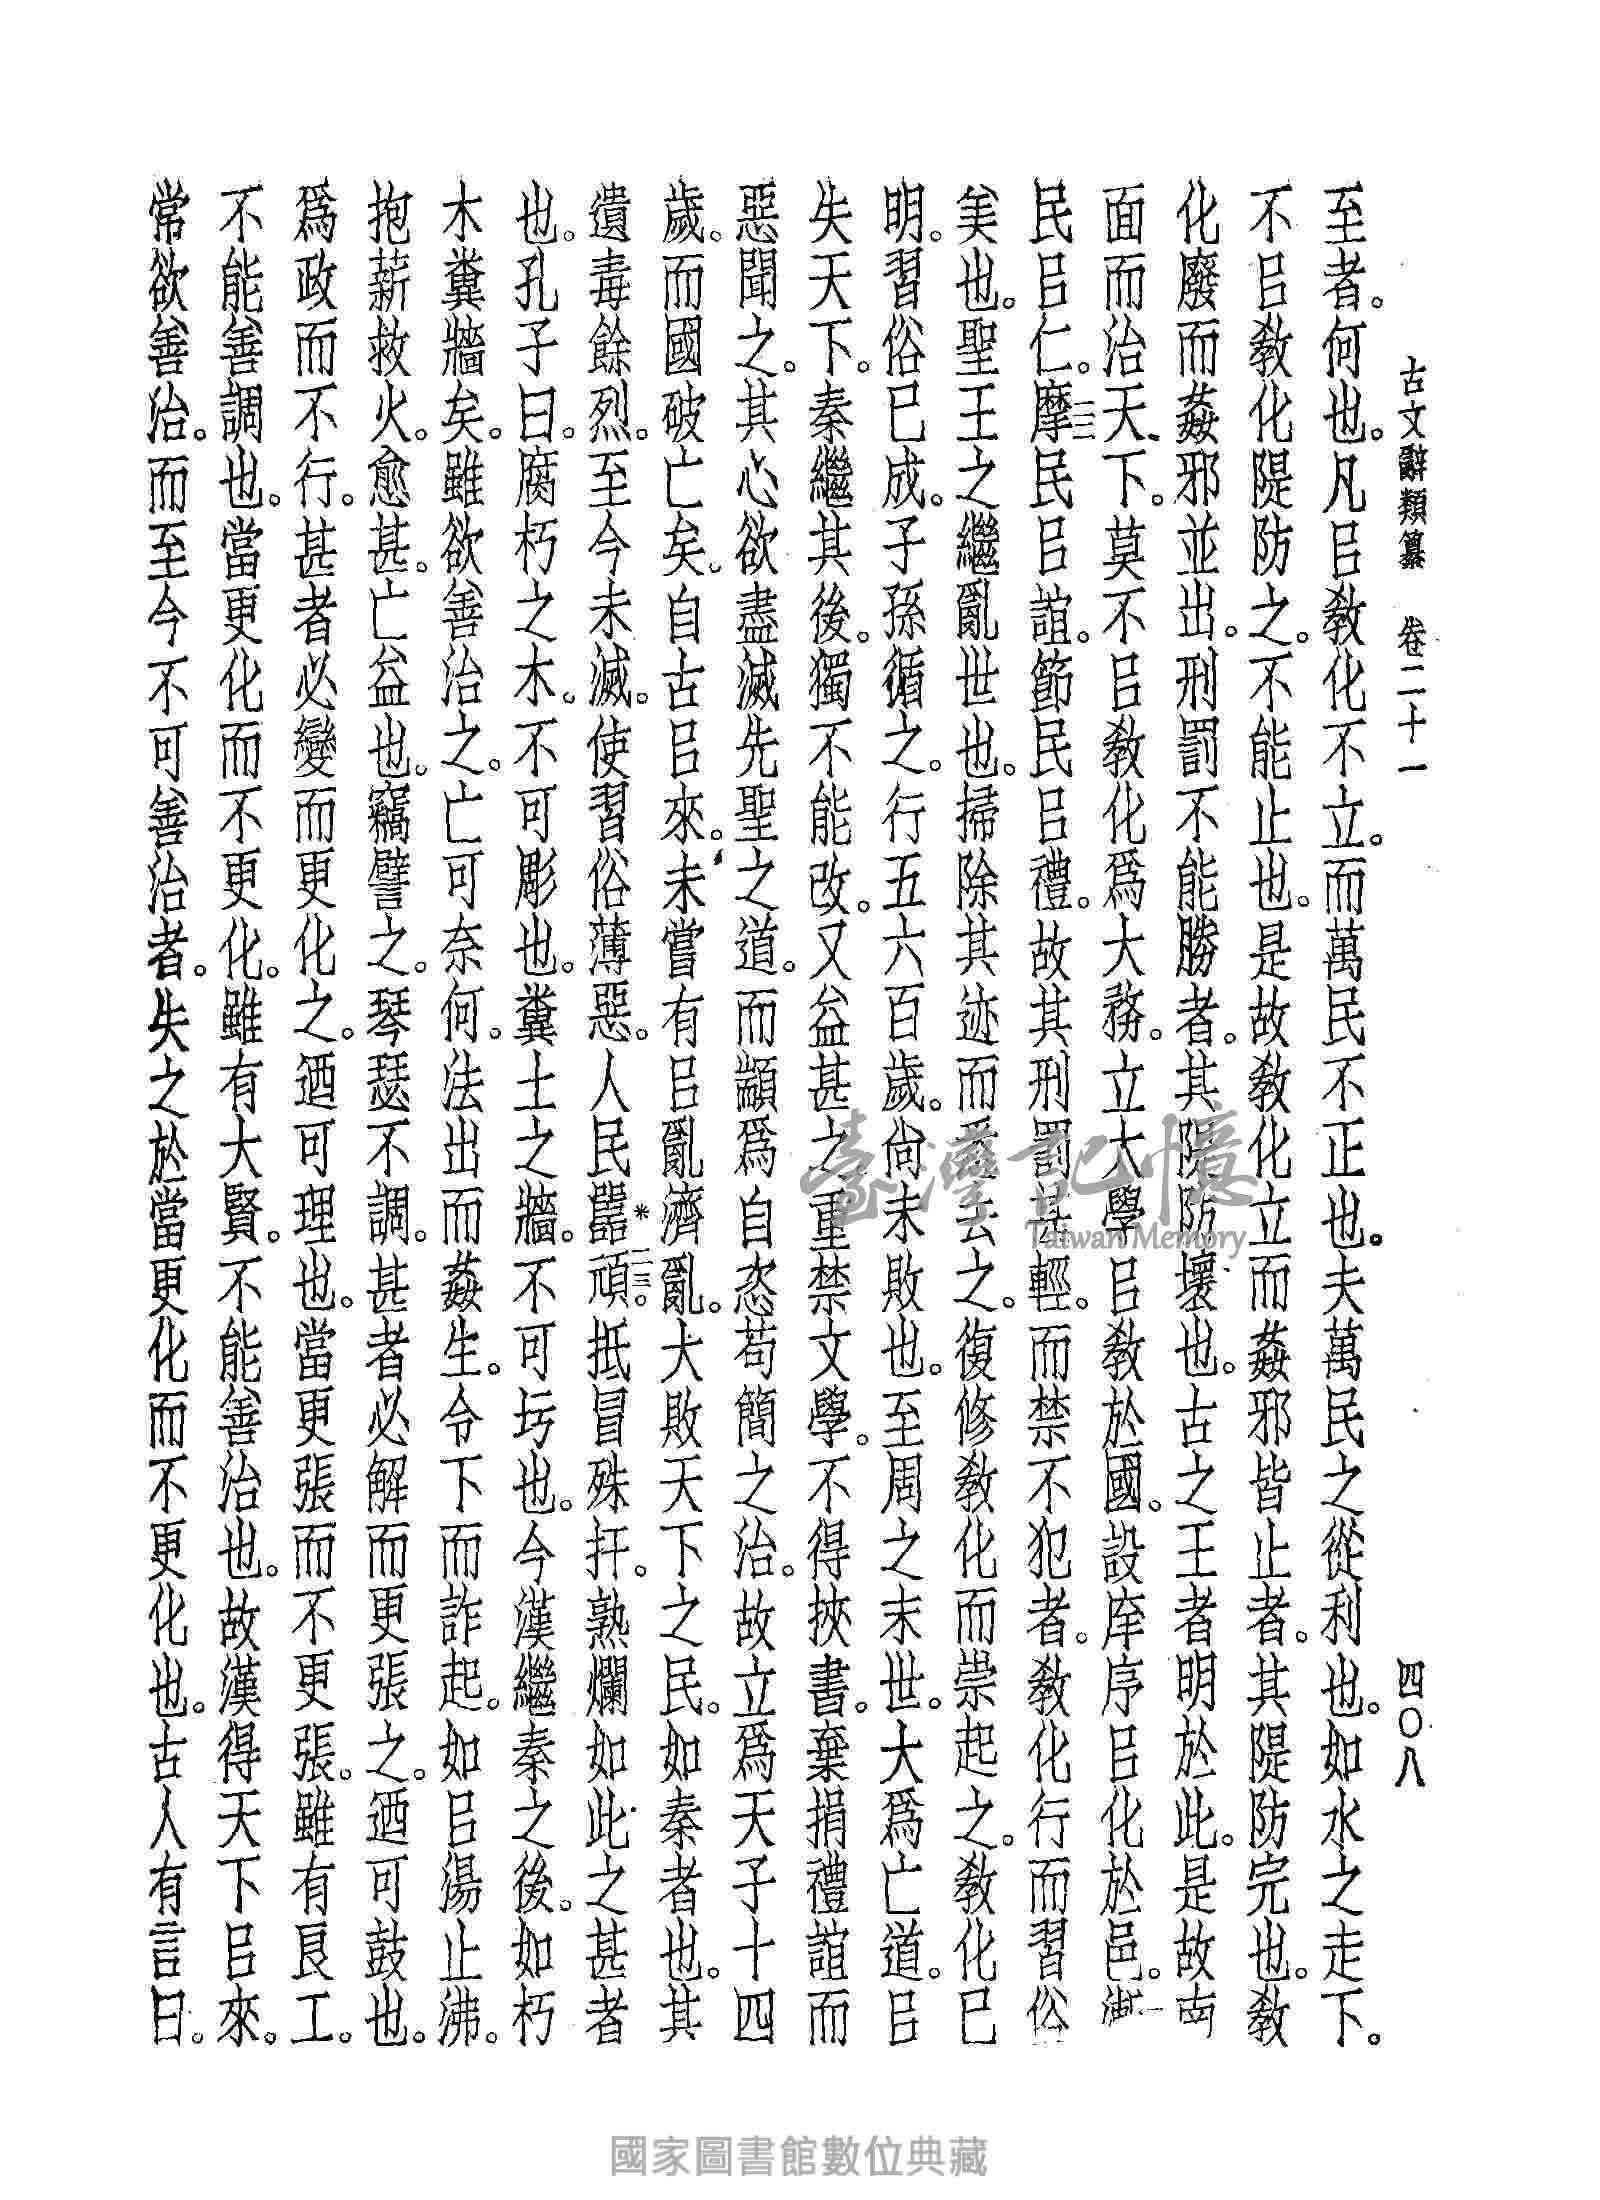 古文辭類纂 卷二十一 四〇八
至者。何也。凡㠯教化不立。而萬民不正也。夫萬民之從利也。如水之走下。
不㠯教化隄防之。不能止也。是故教化立而姦邪皆止者。其隄防完也。教
化廢而姦邪並出。刑罰不能勝者。其隄防壞也。古之王者明於此。是故南
面而治天下。莫不㠯教化爲大務。立大學㠯教於國。設庠序㠯化於邑。漸一
民㠯仁。摩二三民㠯誼。節民㠯禮。故其刑罰甚輕。而禁不犯者。教化行而習俗
美也。聖王之繼亂世也。掃除其迹而悉去之。復修教化而崇起之。教化已
明。習俗已成。子孫循之。行五六百歲。尙未敗也。至周之末世。大爲亡道。㠯
失天下。秦繼其後。獨不能改。又益甚之。重禁文學。不得挾書。棄捐禮誼而
惡聞之。其心欲盡滅先聖之道。而顓爲自恣苟簡之治。故立爲天子十四
歲。而國破亡矣。自古㠯來。未嘗有㠯亂濟亂。大敗天下之民。如秦者也。其
遺毒餘烈。至今未滅。使習俗薄惡。人民嚚*頑二三。抵冒殊扞。熟爛如此之甚者
也。孔子曰。腐朽之木。不可彫也。糞土之牆。不可圬也。今漢繼秦之後。如朽
木糞牆矣。雖欲善治之。亡可奈何。法出而姦生。令下而詐起。如㠯湯止沸。
抱薪救火。愈甚。亡益也。竊譬之。琴瑟不調。甚者必解而更張之。迺可鼓也。
爲政而不行。甚者必變而更化之。迺可理也。當更張而不更張。雖有良工。
不能善調也。當更化而不更化。雖有大賢。不能善治也。故漢得天下㠯來。
常欲善治。而至今不可善治者。失之於當更化而不更化也。古人有言曰。
臺灣記憶
Taiwan Memory
國家圖書館數位典藏